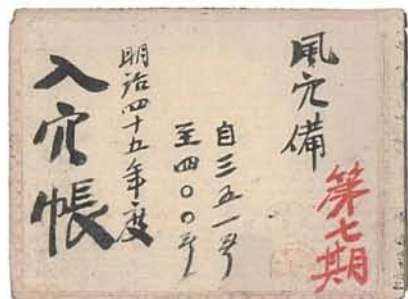 風穴備
第七期
自三五一号
至四〇〇号
明治四十五年度
入穴帳